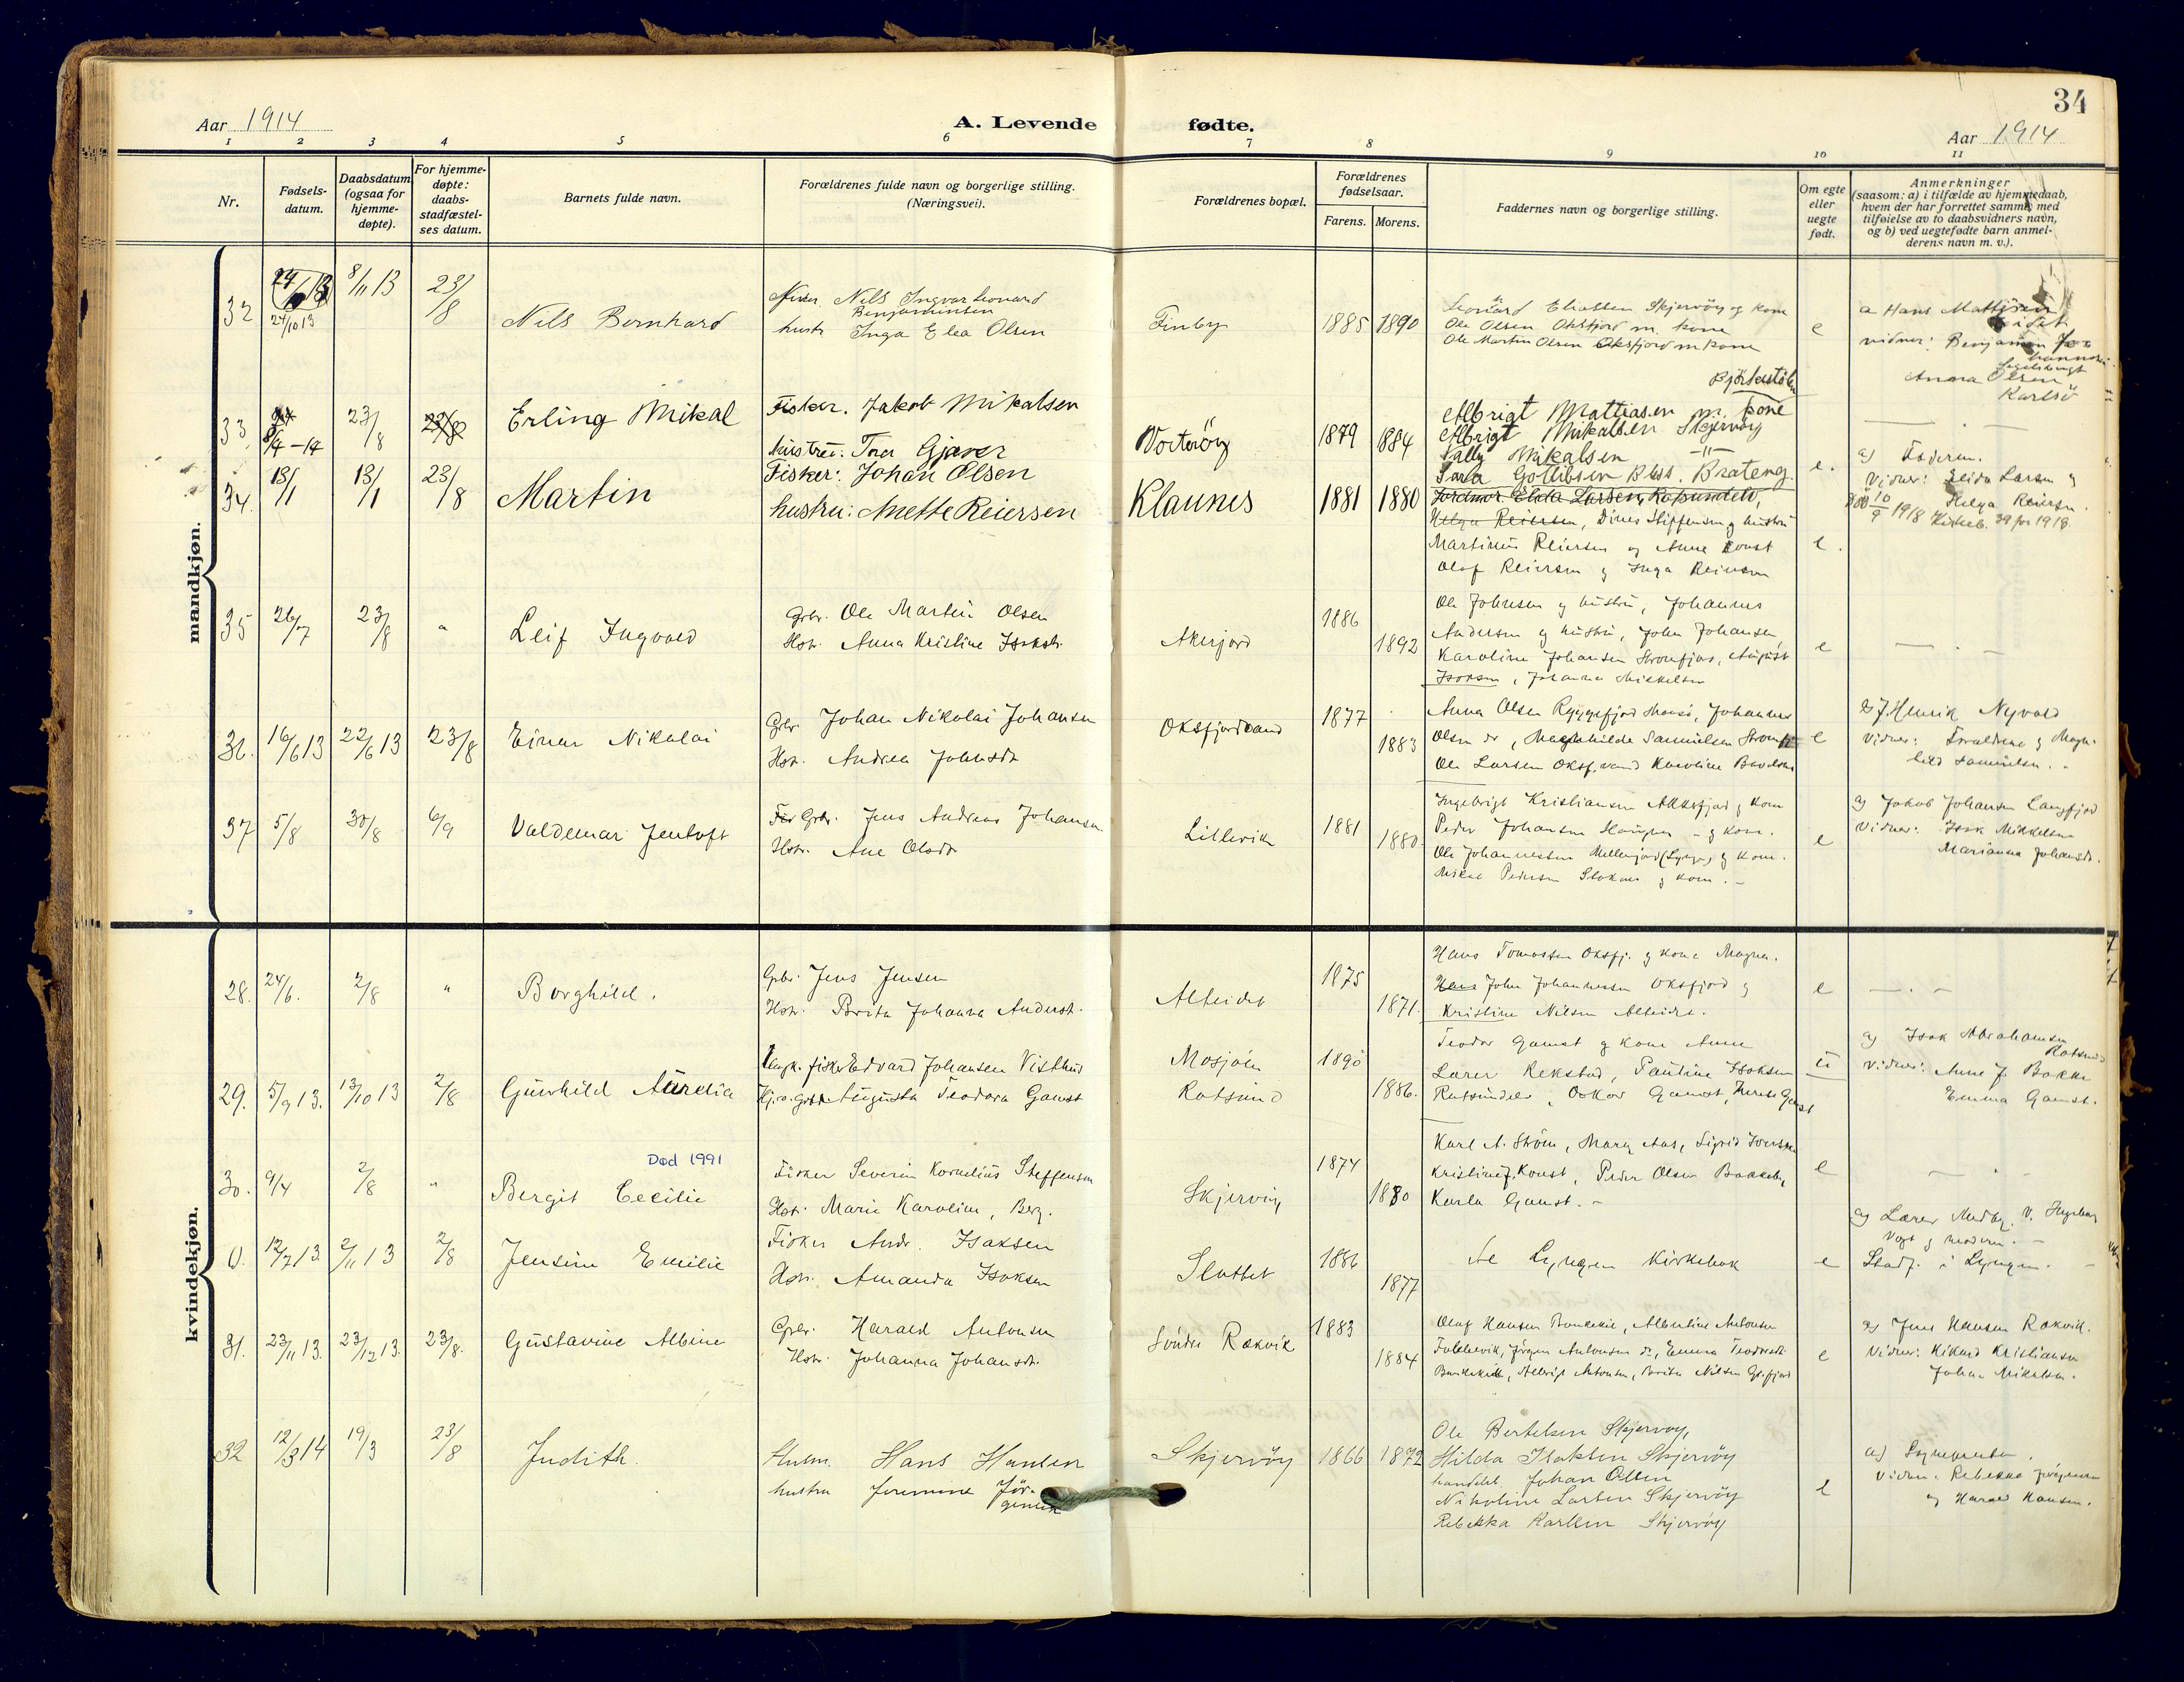 34
Aar 1914
A. Levende fødte.
Aar 1914
1 2 3 4 5 6 7 8 9 10 11
Nr.
Fødsels-
datum.
Daabsdatum
(ogsaa for
hjemme-
døpte).
For hjemme-
døpte:
daabs-
stadfæstel-
ses datum.
Barnets fulde navn.
Forældrenes fulde navn og borgerlige stilling.
(Næringsvei).
Forældrenes bopæl.
Forældrenes
fødselsaar.
Farens. Morens.
Faddernes navn og borgerlige stilling.
Om egte
eller
uegte
født.
Anmerkninger
(saasom: a) i tilfælde av hjemmedaab,
hvem der har forrettet samme med
tilføielse av to daabsvidners navn,
og b) ved uegtefødte barn anmel-
derens navn m. v.).
mandkjøn.
32 24/10 13 8/11 13 23/8 Nils Bernhard
Nils Ingvar Leonard
Benjaminsen
hustr. Inga Elea Olsen
Finby 1885 1890
Leonard Eliassen Skjervöy og kone
Ole Olsen Oksfjord m. kone
Ole Martin Olsen Oksfjord m kone
e
a Hans Mattisen
vidner: Benjamin Jo-
hannsen
Anna Olsen
Karlsö
33 8/4 - 14 23/8 Erling Mikal
Fisker. Jakob Mikalsen
hustru: Tora Gjæver
Vorteröy 1879 1884
Albrigt Mattiasen m. kone
Albrigt Mikalsen Skjervöy
Vally Mikalsen -"-
Sara Gotlibsen Bless. Brateng
e.
34. 13/1 13/1 23/8 Martin
Fisker: Johan Olsen
hustru: Anette Reiersen
Klaunes 1881 1880
Jordmor Elida Larsen, Rotsundelv,
Helga Reiersen, Dines Steffensen og hustru
Martinus Reiersen og Anne Konst
Olaf Reiersen og Inga Reiersen
e.
a) Faderen.
Vidner: Elida Larsen og
Helga Reiersen.
Död 10/9 1918 Kirkeb. 39 for 1918.
35 26/7 23/8 " Leif Ingvald
Gbr. Ole Martin Olsen
Hstr. Anna Kristine Isaksdr.
Akerjord 1886 1892
Ole Johnsen og hustru, Johannes
Andersen og hustru, John Johansen,
Karoline Johansen Storfjord, August
Isaksen, Johanna Mikkelsen
e
36. 16/6 13 22/6 13 23/8 Einar Nikolai
Gbr. Johan Nikolai Johansen
Hstr. Andrea Johnsdr
Oksfjordvand 1877 1883
Anna Olsen Ryggefjord Maasö, Johannes
Olsen do, Magnhilde Samuelsen
Ole Larsen Oksf.vand Karoline
e
a) J. Henrik Nyvold
Vidner: Forældrene og Magn-
hild Samuelsen.
37 5/8 30/8 6/9 Valdemar Jentoft
Gbr. Jens Andreas Johansen
Hstr. Ane Olsdr
Lillevik 1881 1880
Ingebrigt Kristiansen Altefjord og kone
Peder Johansen Haugnes - og kone.
Ole Johannessen (Lyngen) og kone.
Mikal Pedersen og kone. -
e
a) Jakob Johansen Langfjord
Vidner: Isak Mikkelsen
Marianna Johansdr.
kvindekjøn.
28. 24/6. 2/8 " Borghild.
Gbr. Jens Jensen
Hstr. Brita Johanna Andersdr.
Alteidet 1875 1871.
Hans Tomassen Oksfj. og kone Magna.
Hans John Johannessen Oksfjord og
Kristine Nilsen Alteidet.
e
29. 5/9 13. 13/10 13 2/8 Gunhild Aurelia
Ungk. fisker Edvard Johansen Visthus
Augusta Teodora Gamst
Mosjöen
Rotsund
1890 1886.
Teodor Gamst og kone Anne
Lærer Rekstad, Pauline Isaksen
Rotsundelv, Oskar Gamst, Therese Gamst
u
a) Isak Abrahamsen
Rotsund
Vidner: Anne J. Bakke
Emma Gamst.
30. 9/4 2/8 " Bergit Cecilie
Død 1991
Fisker Severin Kornelius Steffensen
Hstr: Marie Karoline, Berg.
Skjervöy 1874 1880
Karl A. Ström, Mary Aas, Sigrid Iversen
Kristine J. Konst, Peder Olsen Bakkeby,
Karla Gamst. -
e
0. 12/7 13. 2/11 13 2/8 Jensine Emilie
Fisker Andr. Isaksen
Hstr. Amanda Isaksen
Slottet 1886 1877
Se Lyngen Kirkebok
e
a) Lærer V. Ingeborg
Vogt og moderen. -
Stadf. i Lyngen. -
31. 23/11 13. 23/12 13. 23/8. Gustavine Albine
Gbr. Harald Antonsen
Hstr. Johanna Johansdr.
Söndre Rækvik 1883 1884
Olaf Hansen, Albertine Antonsen
Jörgen Antonsen do, Emma Teodorsdr.
Albrigt Antonsen, Brita Nilsen
e
a) Jens Hansen Rækvik.
Vidner: Rikard Kristiansen
Johan Mikelsen.
32 12/3 14 19/3 23/8 Judith.
Hans Hansen
hustru Jör-
gensen
Skjervöy 1866 1872
Ole Bertelsen Skjervöy,
Hilda Isaksen Skjervöy
handelsb. Johan Olsen
Nikoline Larsen Skjervöy
Rebekka Karlsen Skjervöy
e
a) Sognepresten.
Vidner: Rebekka Jörgensen
og Harald Hansen.